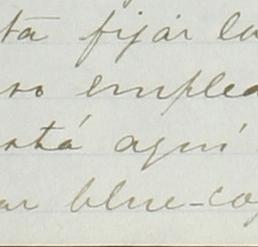 ta fijár la
so emplea
está aquí
ar blue-co